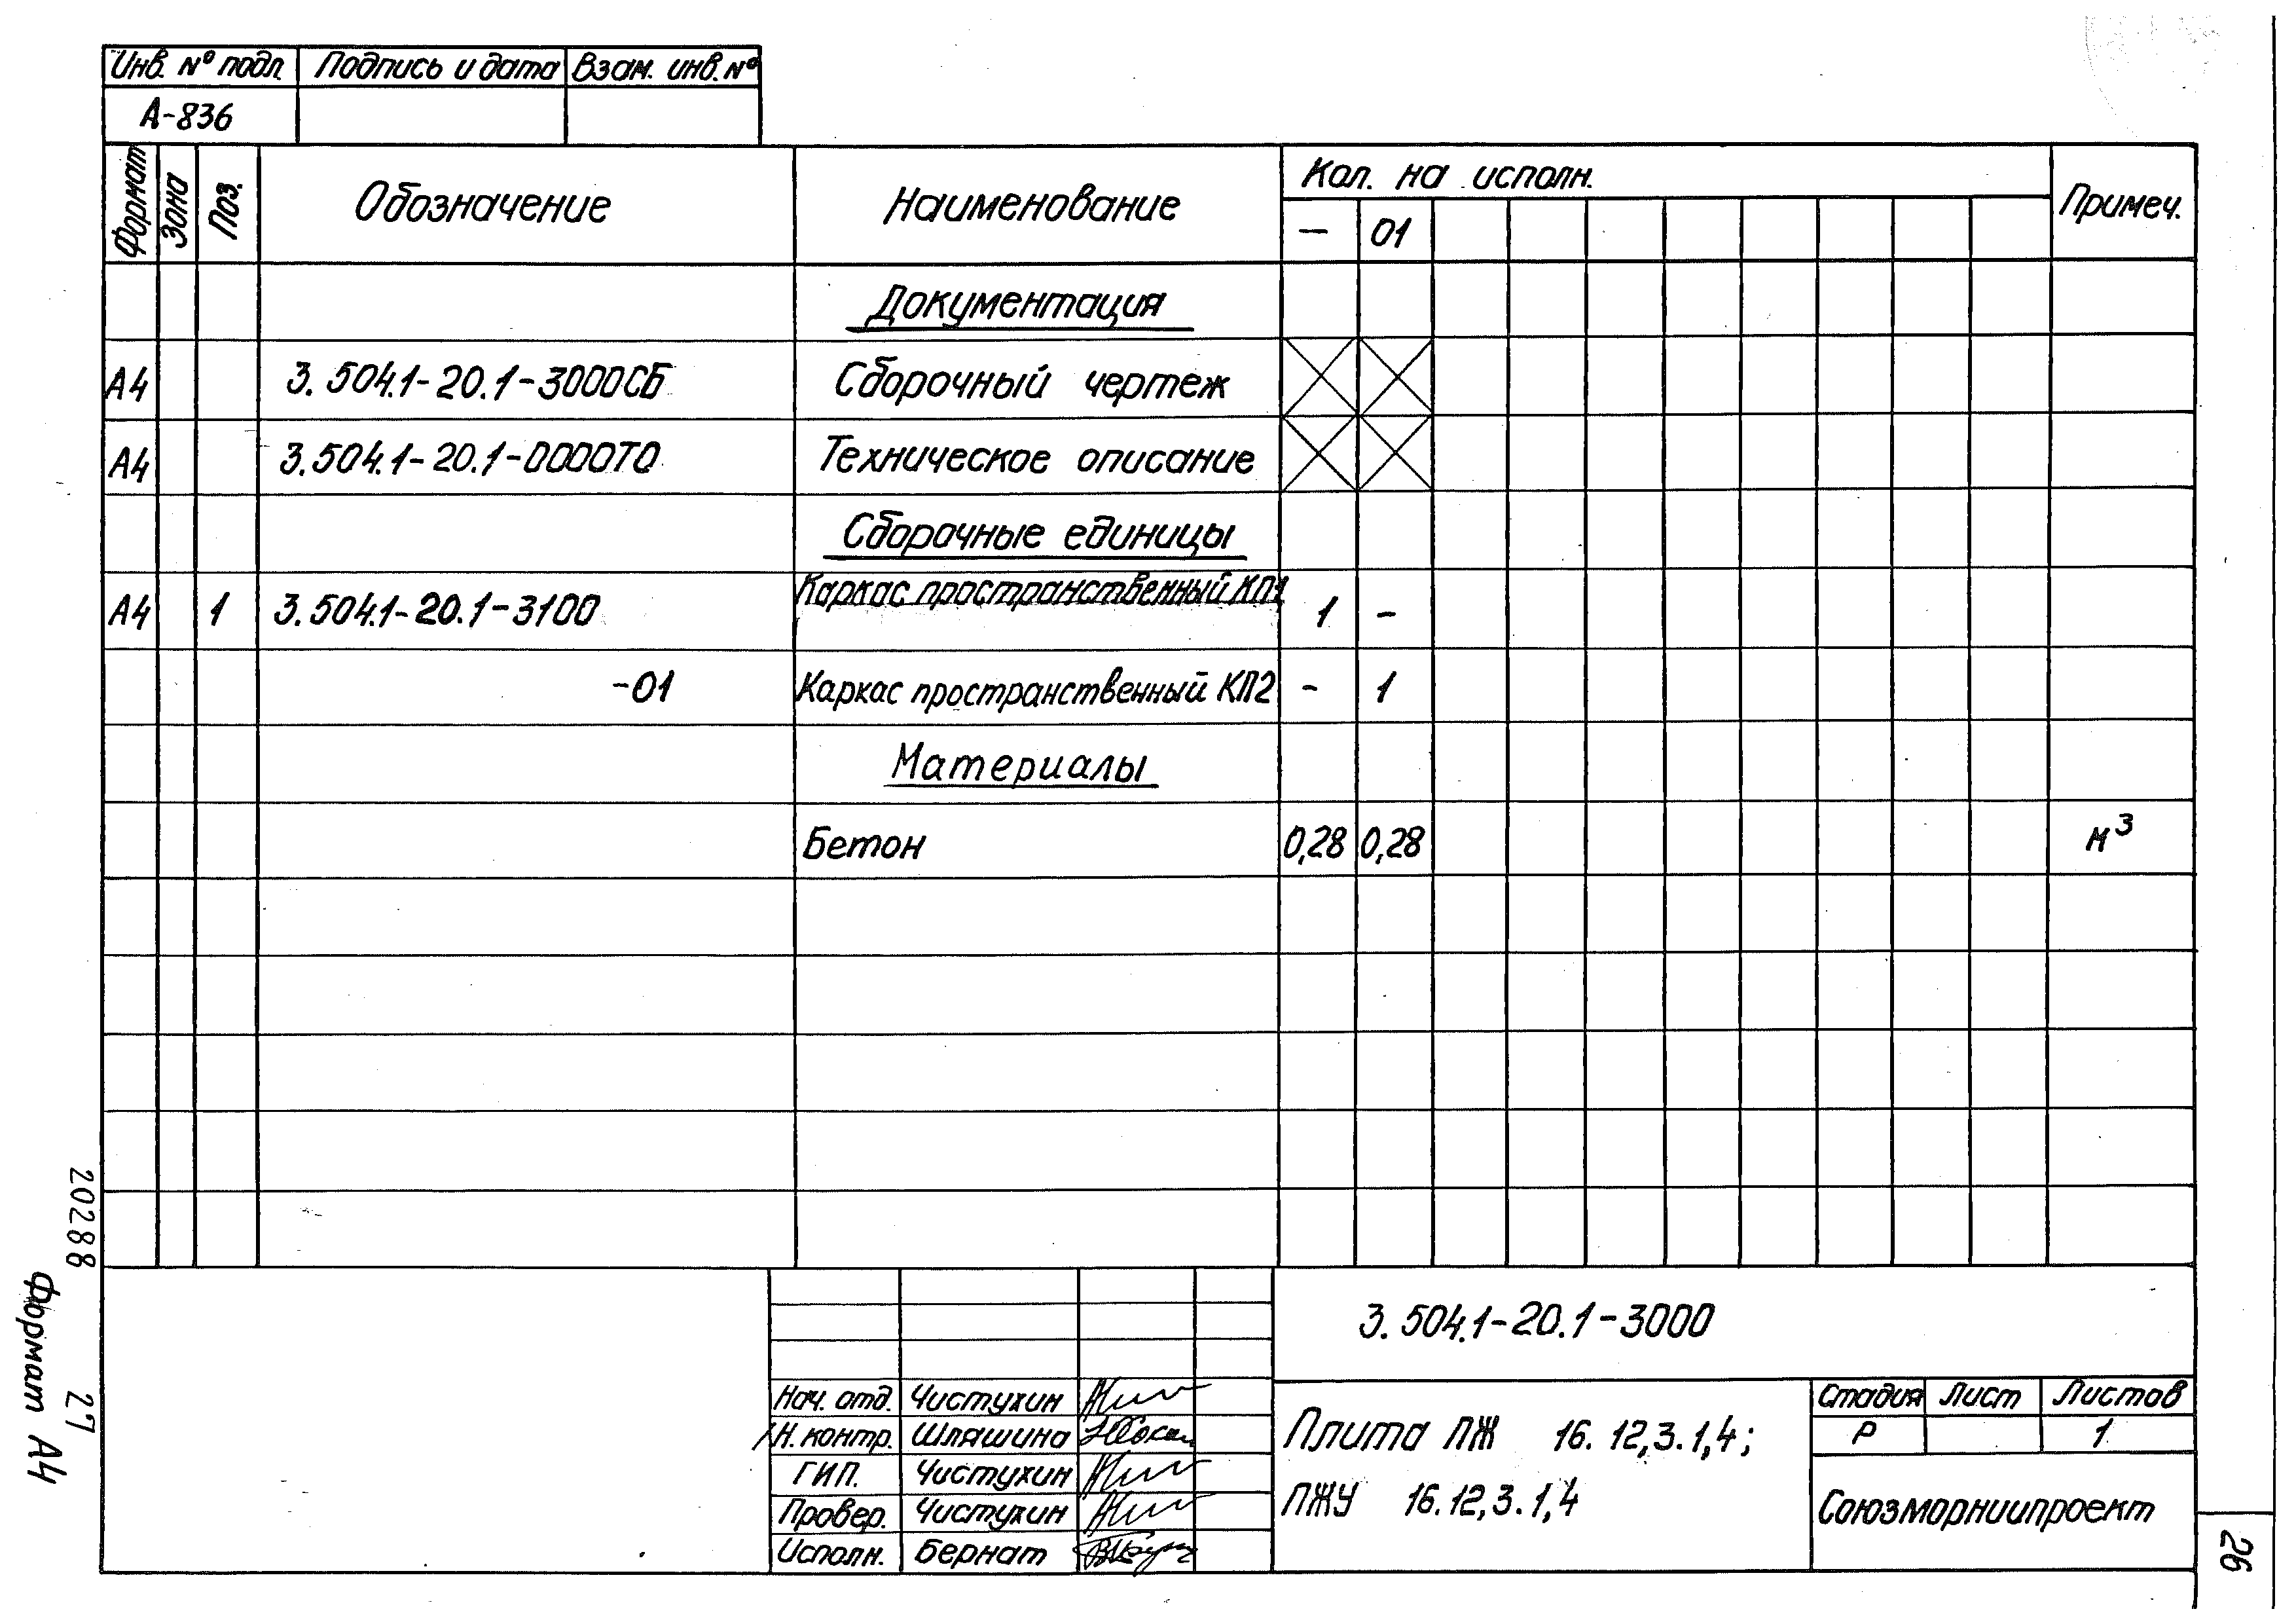 Инв. № подл. Подпись и дата Взам. инв. №
А-836
Формат Зона Поз. Обозначение Наименование Кол. на исполн. Примеч.
— 01
Документация
А4 3.504.1-20.1-3000СБ Сборочный чертеж
А4 3.504.1-20.1-0000ТО Техническое описание
Сборочные единицы
А4 1 3.504.1-20.1-3100 Каркас пространственный КП1 1 -
-01 Каркас пространственный КП2 - 1
Материалы
Бетон 0,28 0,28 м³
3.504.1-20.1-3000
Нач. отд. Чистухин
Н. контр. Шляшина
ГИП. Чистухин
Провер. Чистухин
Исполн. Бернат
Плита ПЖ 16.12,3.1,4;
ПЖУ 16.12,3.1,4
Стадия Лист Листов
Р 1
Союзморниипроект
20288 27
Формат А4
26